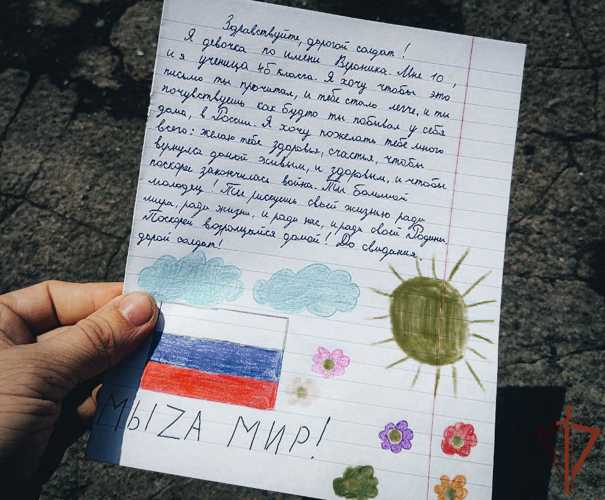 Здравствуйте, дорогой солдат!
Я девочка по имени Вероника. Мне 10,
и я ученица 4б класса. Я хочу чтобы это
письмо ты прочитал, и тебе стало легче, и ты
почувствуешь как будто ты побывал у себя
дома, в России. Я хочу пожелать тебе много
всего: желаю тебе здоровья, счастья, чтобы
вернулся домой живым, и здоровым, и чтобы
поскорей закончилась война. Ты большой
молодец! Ты рискуешь своей жизнью ради
мира, ради жизни, и ради нас, и ради своей Родины.
Поскарей возвращайся домой! До свидания,
дорой солдат!
МЫ ZА МИР!